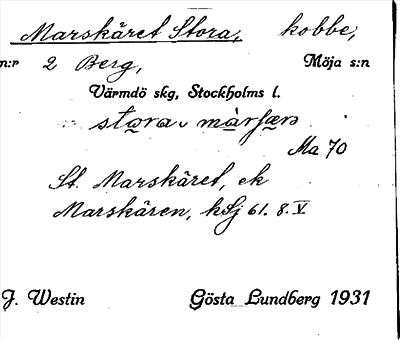 Marskäret Stora, kobbe,
n:r 2 Berg, Möja s:n
Värmdö skg, Stockholms l.
Ma 70
St. Marskäret, ek
Marskären, ksj 61. 8. V.
J. Westin Gösta Lundberg 1931